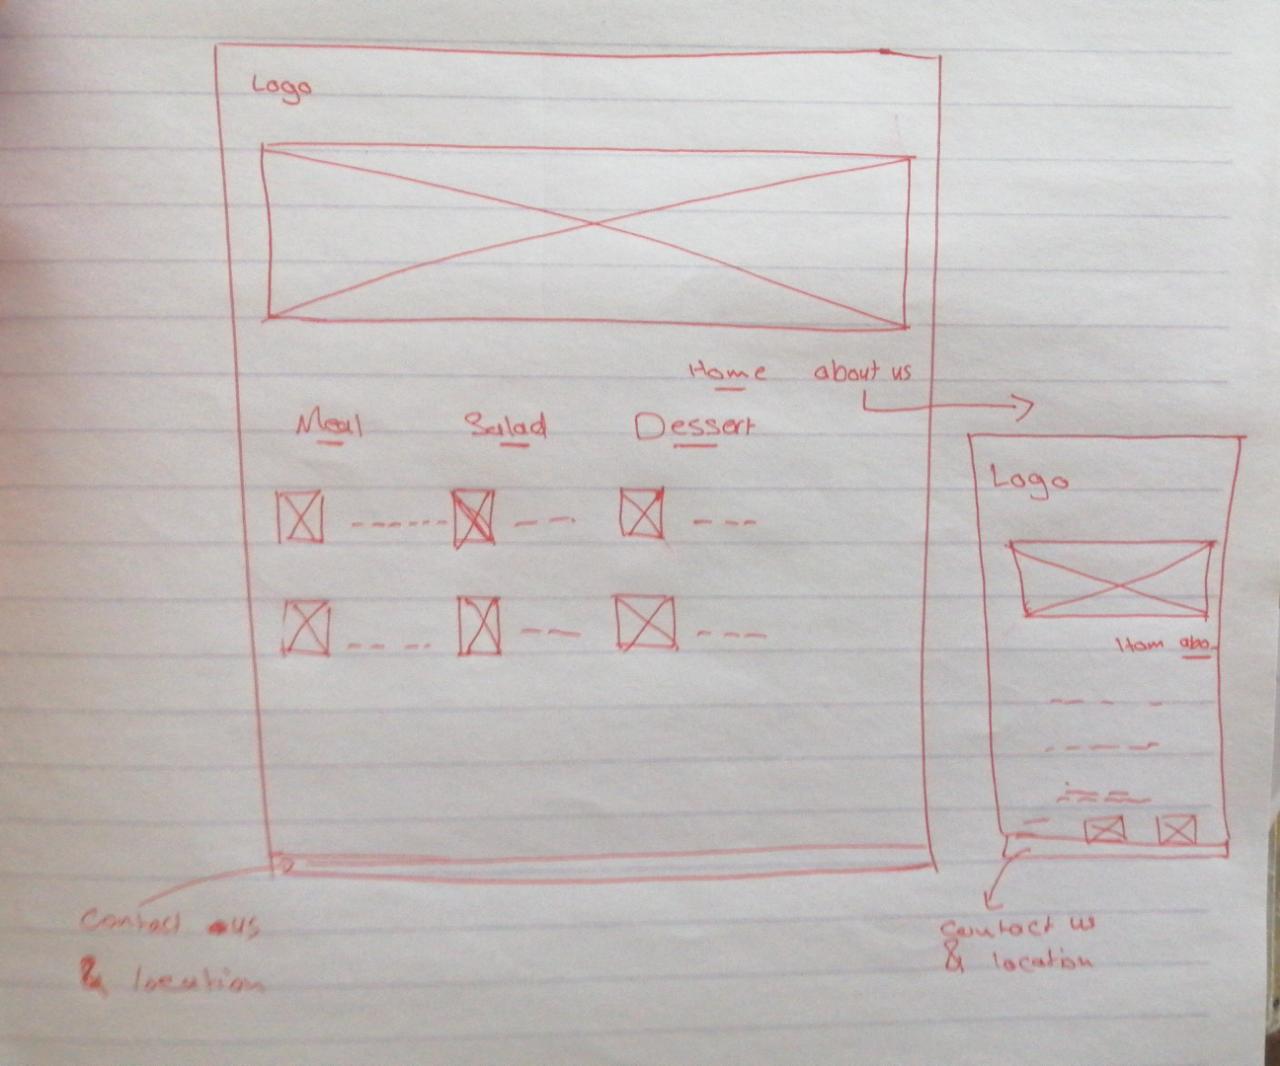 Logo
Home about us
Meal Salad Dessert
Contact us
& location
Logo
Hom abo
contact us
& location